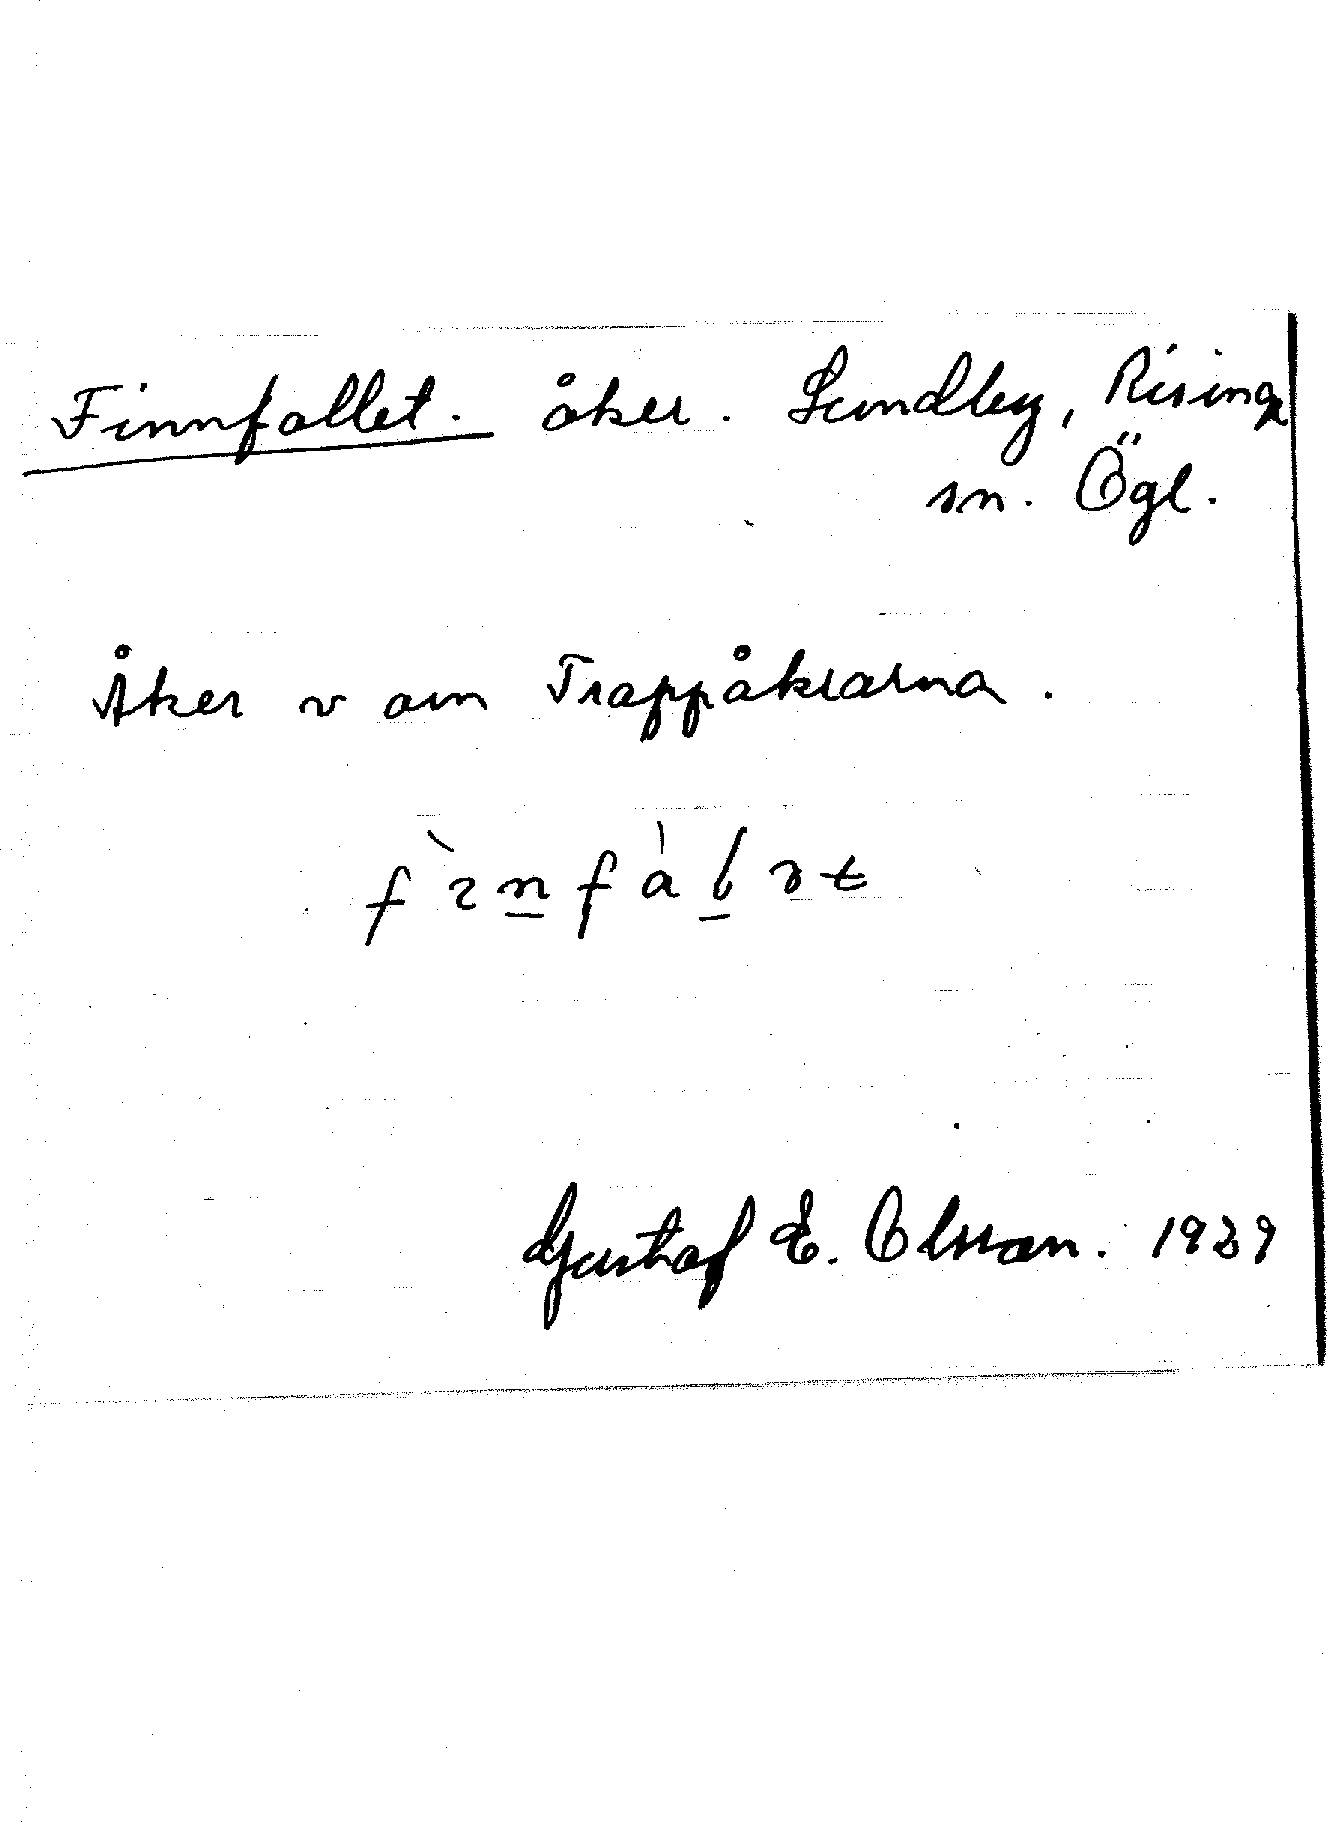 Finnfallet. åker. Sundby, Risinge
sn. Ögl.
Åker v om Trappåkrarna.
Gustaf E. Olsson. 1929